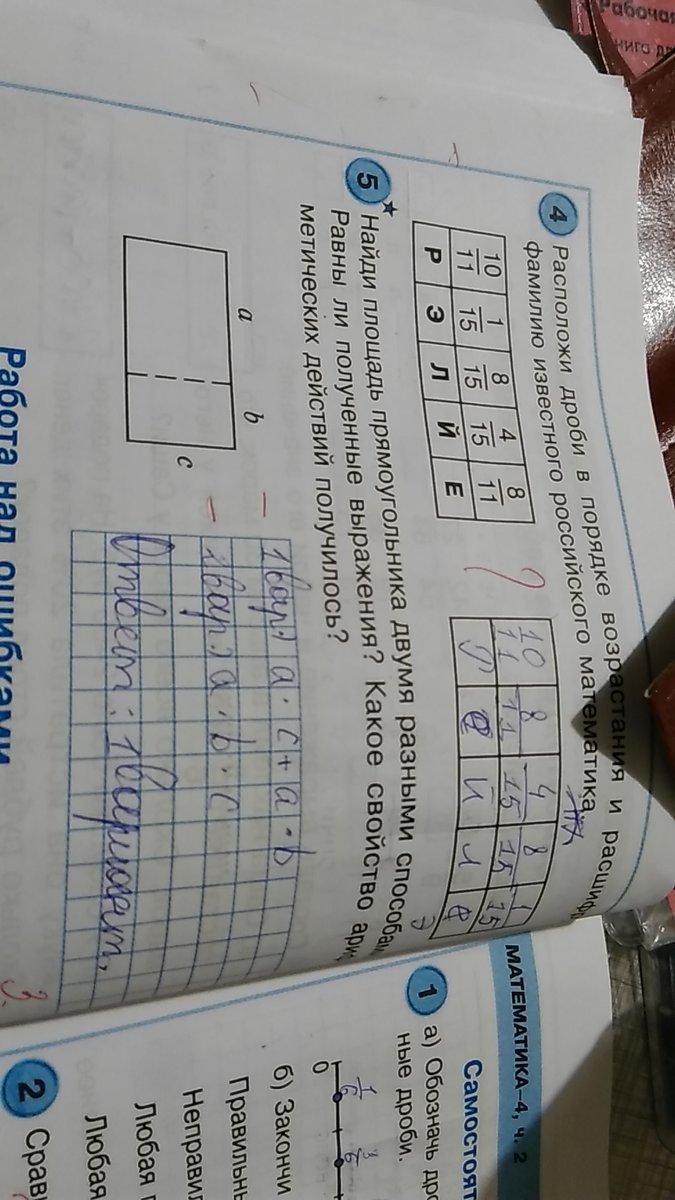 Рабочая
4 Расположи дроби в порядке возрастания и
фамилию известного российского математика.
10/11 1/15 8/15 4/15 8/11
Р Э Л Й Е
10/11 8/11 4/15 8/15 1/15
Р е й л е
Э
5* Найди площадь прямоугольника двумя разными
Равны ли полученные выражения? Какое свойство
метических действий получилось?
a b
c
1 вар) a · c + a · b
1 вар) a · b · c
Ответ: 1 вариант,
Работа над ошибками
3.
МАТЕМАТИКА–4, ч. 2
1 а) Обозначь
ные дроби.
1/6 3/6
0
б) Закончи
Любая
Любая
2